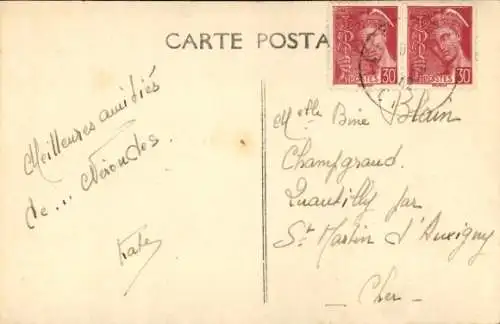 CARTE POSTA
30 POSTES POSTES 30
Meilleures amitiés
de ... Nérondes.
Kate
Melle Bine Blain
Champgraud.
Quantilly par
St Martin d'Auxigny
Cher